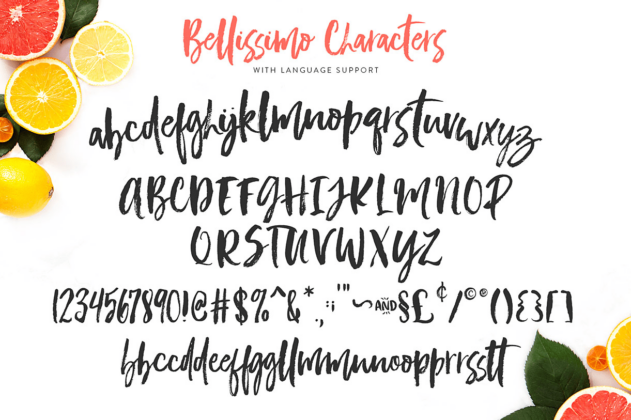 Bellissimo Characters
WITH LANGUAGE SUPPORT
abcdefghijklmnopqrstuvwxyz
ABCDEFGHIJKLMNOP
QRSTUVWXYZ
1234567890!@#$%^&*.,:;'"~AND§£¢/©®(){}[]
bbccddeeffggllmmnunoopprrsstt